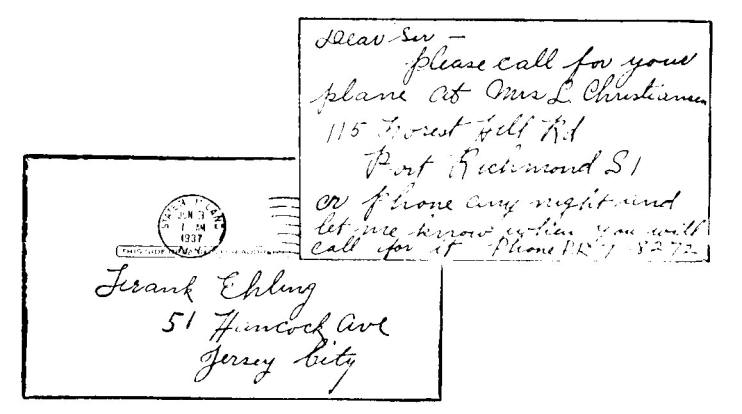 Dear Sir –
Please call for your
plane at Mrs L. Christiansen
115 Forest Hill Rd
Port Richmond S I
or phone any night and
let me know when you will
call for it Phone P.R. 7-8272
STATEN ISLAND
JUN 3
1 AM
1937
N.Y.
THIS SIDE
Frank Ehling
51 Hancock Ave
Jersey City